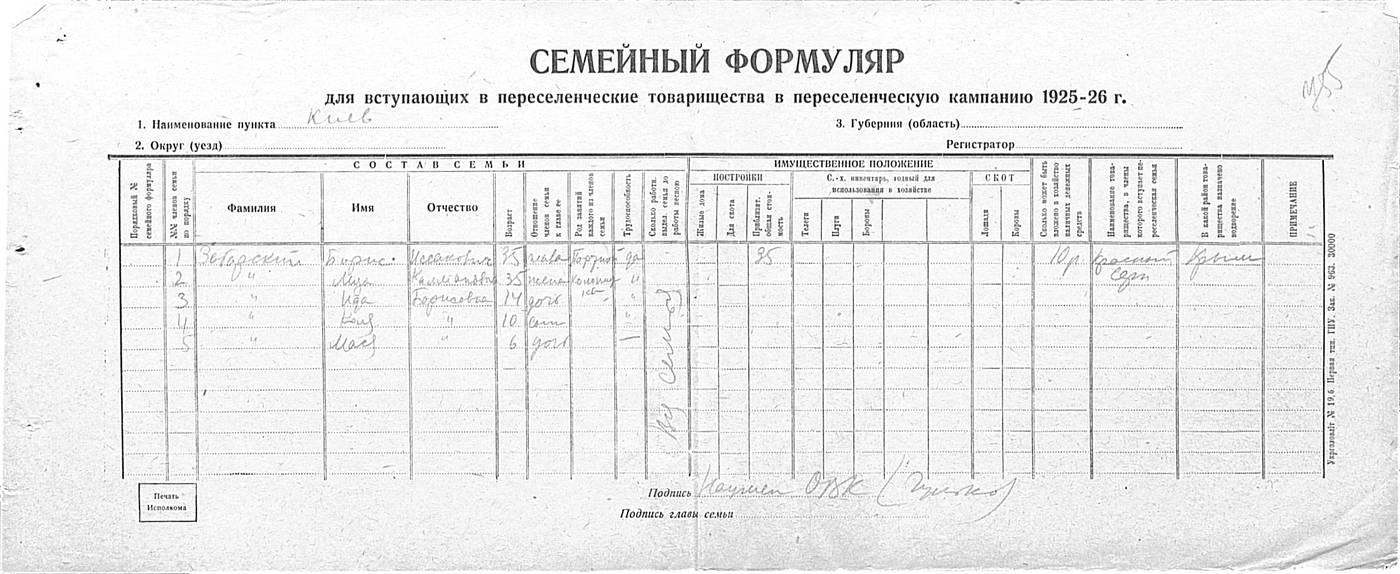 СЕМЕЙНЫЙ ФОРМУЛЯР
для вступающих в переселенческие товарищества в переселенческую кампанию 1925-26 г.
№55
1. Наименование пункта Киев
3. Губерния (область)
2. Округ (уезд)
Регистратор
Порядковый № семейного формуляра
СОСТАВ СЕМЬИ
№№ членов семьи по порядку
Фамилия
Имя
Отчество
Возраст
Отношение членов семьи к главе ее
Род занятий каждого из членов семьи
Трудоспособность
Сколько работн. выдел. семья до работы весною
ИМУЩЕСТВЕННОЕ ПОЛОЖЕНИЕ
ПОСТРОЙКИ
Жилые дома
Для скота
Приблизит. общая стоимость
С.-х. инвентарь, годный для использования в хозяйстве
Телеги
Плуги
Бороны
СКОТ
Лошади
Коровы
Сколько может быть вложено в хозяйство наличных денежных средств
Наименование товарищества, в члены которого вступает переселенческая семья
В какой район товарищества назначено водворение
ПРИМЕЧАНИЕ
1 Борис Исаакович 35 глава да 35 Красный Крым
2 " 35 жена "
3 " Ида Борисовна 14 дочь "
4 " Коля " 10 сын
5 " Мася " 6 дочь
Вся семья
Печать Исполкома
Подпись ОВК
Подпись главы семьи
Укрголовліт № 19,6. Первая тип. ТПУ. Зак. № 963. 30000